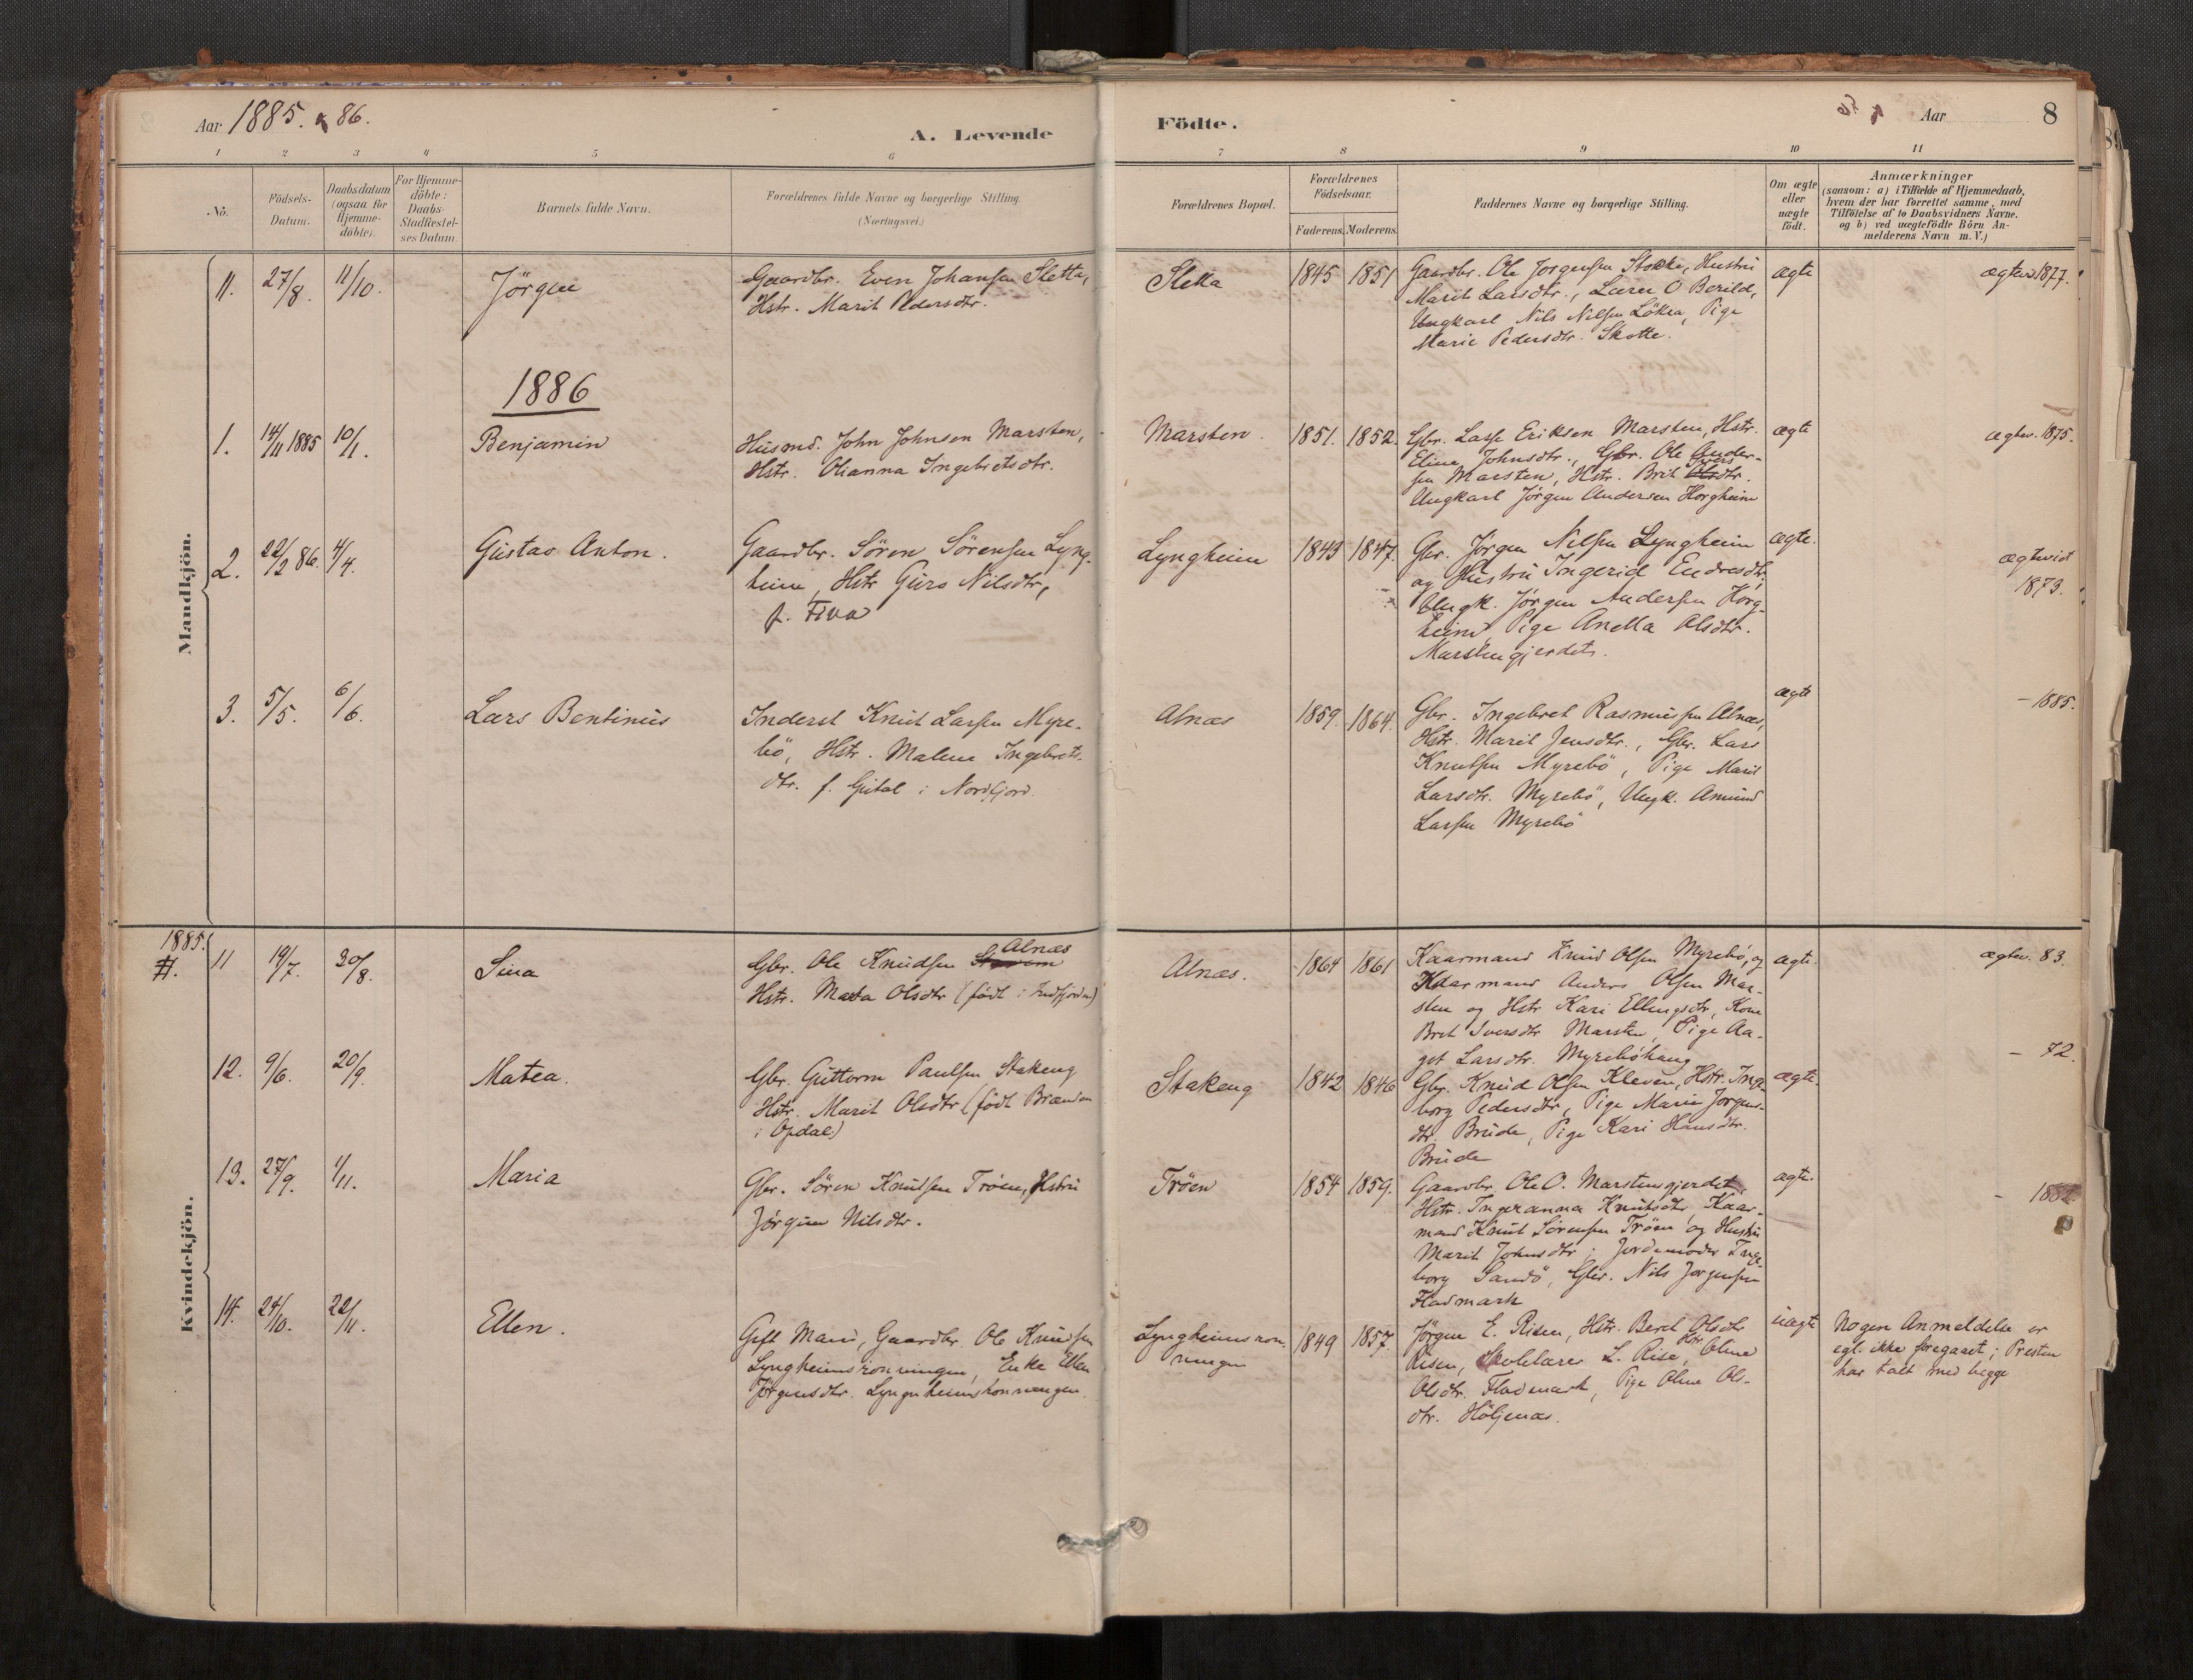 Aar 1885. & 86.
A. Levende
Födte.
Aar
8
1 2 3 4 5 6 7 8 9 10 11
No.
Födsels-
Datum.
Daabsdatum
(ogsaa for
Hjemme-
döbte).
For Hjemme-
döbte:
Daabs-
Stadfæstel-
ses Datum.
Barnets fulde Navn.
Forældrenes fulde Navne og borgerlige Stilling
(Næringsvei.)
Forældrenes Bopæl.
Forældrenes
Födselsaar.
Faderens. Moderens.
Faddernes Navne og borgerlige Stilling.
Om ægte
eller
uægte
födt.
Anmærkninger
(saasom: a) i Tilfælde af Hjemmedaab,
hvem der har forrettet samme, med
Tilföielse af to Daabsvidners Navne.
og b) ved uægtefödte Börn An-
melderens Navn m.V.)
Mandkjön.
11. 27/8. 11/10. Jörgen
Gaardbr. Even Johansen Sletta,
Hstr. Marit Pedersdtr.
Sletta 1845 1851
Gaardbr. Ole Jorgensen Stokke, Hustru
Marit Larsdtr., Lærer O Berild,
Ungkarl Nils Nilsen Lökra, Pige
Marie Pedersdtr. Skotte.
ægte
ægtev. 1877.
1886
1. 14/11 1885 10/1. Benjamin
Husmd. John Johnsen Marsten,
Hstr. Olianna Ingebretsdtr.
Marsten. 1851. 1852.
Gbr. Lasse Eriksen Marsten, Hstr.
Eline Johnsdtr., Gbr. Ole Ander-
sen Marsten, Hstr. Brit Ivers dtr.
Ungkarl Jörgen Andersen Horgheim
ægte
ægtev. 1875.
2. 22/2 86. 4/4. Gustav Anton.
Gaardbr. Sören Sörensen Lyng-
heim, Hstr Guro Nilsdtr,
f. Fiva
Lyngheim 1843 1847.
Gbr. Jörgen Nilsen Lyngheim
og Hustru Ingerid Endresdtr,
Ungk. Jörgen Andersen Horg-
heim, Pige Anella Olsdtr.
Marstengjerdet.
ægte.
ægteviet
1873.
3. 5/5. 6/6. Lars Bentinus
Inderst Knut Larsen Myre-
bö, Hstr. Malene Ingebrets-
dtr. f. Gutal i Nordfjord.
Alnæs 1859. 1864.
Gbr. Ingebret Rasmussen Alnæs,
Hstr. Marit Jensdtr., Gbr. Lars
Knutsen Myrebö, Pige Marit
Larsdtr. Myrebö, Ungk. Amund
Larsen Myrebö
ægte
– 1885.
Kvindekjön.
1885.
11 19/7. 30/8. Sina
Gbr. Ole Knudsen Alnæs
Hstr. Marta Olsdtr (födt i Indfjorden)
Alnæs. 1864 1861
Kaarmand Knud Olsen Myrebö, og
Kaarmand Anders Olsen Mar-
sten og Hstr Kari Ellingsdtr, Kone
Brit Iversdtr Marsten, Pige Aa-
got Larsdtr. Myreböhaug
ægte.
ægtev. 83.
12. 9/6. 20/9. Matea.
Gbr. Guttorm Paulsen Stakeng
Hstr. Marit Olsdtr (födt Brænden
i Opdal.)
Stakeng 1842 1846
Gbr. Knud Olsen Kleven, Hstr. Inge-
borg Pedersdtr, Pige Marie Jorgens-
dtr. Brude, Pige Kari Hansdtr.
Brude
ægte.
– 72.
13. 27/9. 1/11. Maria
Gbr. Sören Knutsen Tröen, Hstru
Jörgine Nilsdtr.
Tröen 1854 1859.
Gaardbr. Ole O. Marstensgjerdet,
Hstr. Ingeranna Knutsdtr, Kaar-
mand Knut Sörensen Tröen og Hustru
Marit Johnsdtr; Jordemoder Inge-
borg Sandö, Gbr. Nils Jorgensen
Fladmark
ægte.
14. 24/10. 22/11. Ellen.
Gift Mand, Gaardbr. Ole Knudsen
Lyngheimsrönningen, Enke Ellen
Jörgensdtr. Lyngheimsrönningen.
Lyngheimsrön-
ningen 1849 1857.
Jörgen E. Risen, Hstr. Beret Olsdtr
Risen, Skolelærer L. Rise, Hstr. Oline
Olsdtr. Fladmark, Pige Oline Ols-
dtr. Höljenæs.
uægte
Nogen Anmeldelse er
egl. ikke foregaaet; Presten
har talt med begge